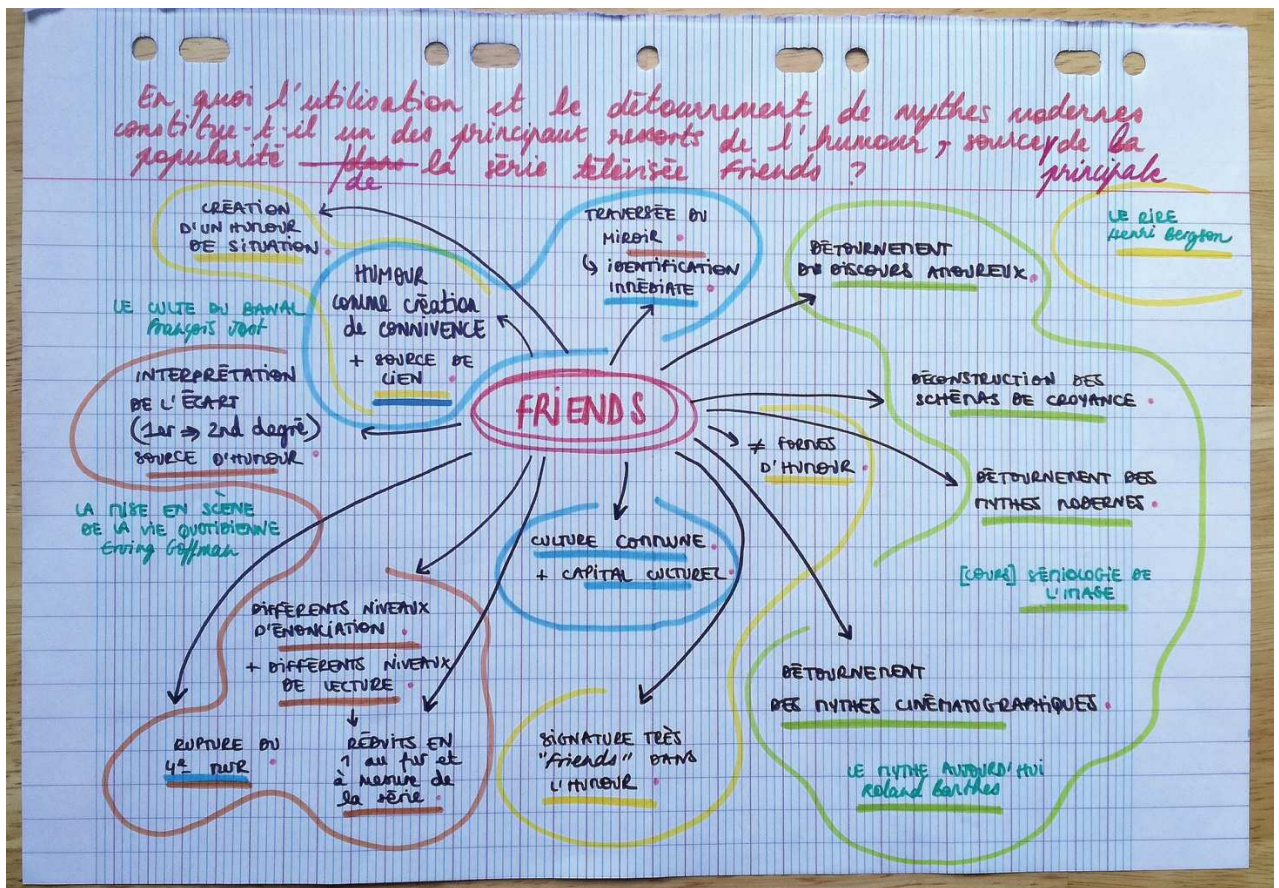 En quoi l'utilisation et le détournement de mythes modernes
constitue-t-il un des principaux ressorts de l'humour, source de la
principale
popularité de la série télévisée Friends ?
CRÉATION
D'UN HUMOUR
DE SITUATION
HUMOUR
comme création
de CONNIVENCE
+ SOURCE DE
LIEN
TRAVERSÉE DU
MIROIR
↳ IDENTIFICATION
IMMÉDIATE
DÉTOURNEMENT
DU DISCOURS AMOUREUX
LE RIRE
Henri Bergson
LE CULTE DU BANAL
François Jost
INTERPRÉTATION
DE L'ÉCART
(1er → 2nd degré)
SOURCE D'HUMOUR
FRIENDS
DÉCONSTRUCTION DES
SCHÉMAS DE CROYANCE
≠ FORMES
D'HUMOUR
DÉTOURNEMENT DES
MYTHES MODERNES
LA MISE EN SCÈNE
DE LA VIE QUOTIDIENNE
Erving Goffman
CULTURE COMMUNE
+ CAPITAL CULTUREL
[COURS] SÉMIOLOGIE DE
L'IMAGE
DIFFÉRENTS NIVEAUX
D'ÉNONCIATION
+ DIFFÉRENTS NIVEAUX
DE LECTURE
DÉTOURNEMENT
DES MYTHES CINÉMATOGRAPHIQUES
RUPTURE DU
4e MUR
RÉDUITS EN
1 au fur et
à mesure de
la série
SIGNATURE TRÈS
"friends" DANS
L'HUMOUR
LE MYTHE AUJOURD'HUI
Roland Barthes